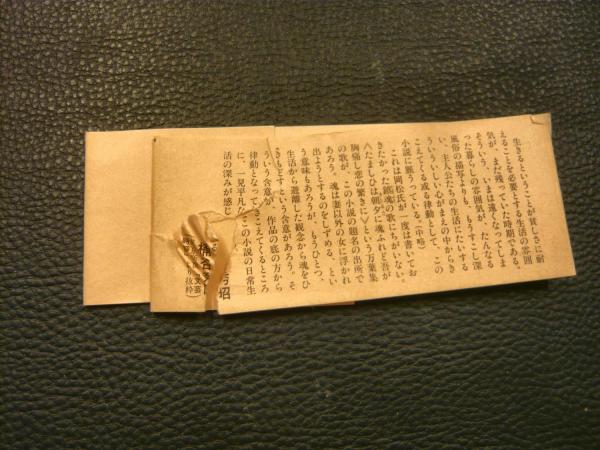 生きるということが貧しさに耐
えることを必要とする生活の雰囲
気が、まだ残っていた時期である。
そういう、いまは遠くなってしま
った暮らしの雰囲気が、たんなる
風俗の描写よりも、もうすこし深
い、主人公たちの生活にたいする
ういういしい心がまえの中からき
こえてくる或る律動として、この
小説に漲っている。（中略）
これは岡松氏が一度は書いてお
きたかった鎮魂の歌にちがいない。
〈たましひは朝夕に魂ふれど吾が
胸痛し恋の繁きに〉という万葉集
の歌が、この小説の題名の出所で
あろう。魂は妻以外の女に浮かれ
出ようとするのをしずめる、とい
う意味もあろうが、もうひとつ、
生活から遊離した観念から魂をひ
きもどすという含意があろう。そ
ういう含意が、作品の底の方から
律動となってきこえてくるところ
に、一見平凡なこの小説の日常生
活の深みが感じ
桶谷